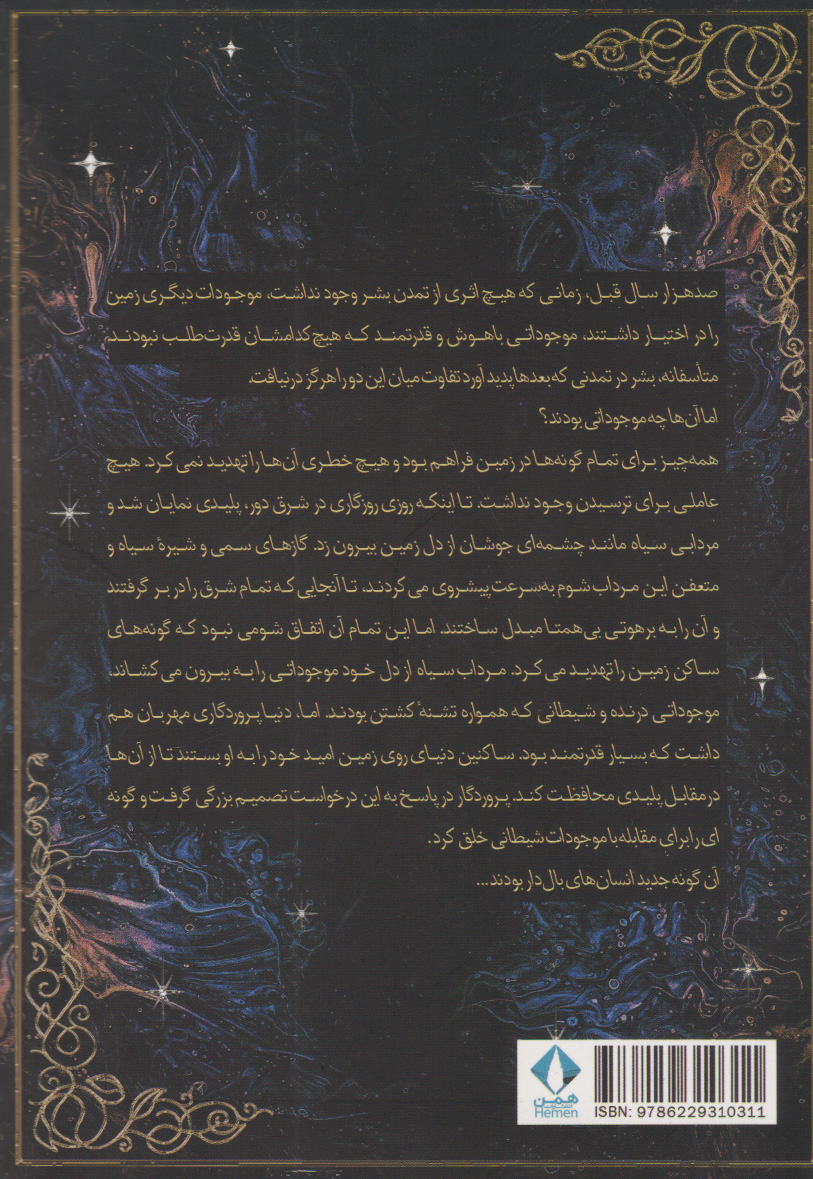 صدهزار سال قبل، زمانی که هیچ اثری از تمدن بشر وجود نداشت، موجودات دیگری زمین
را در اختیار داشتند، موجوداتی باهوش و قدرتمند که هیچ‌کدامشان قدرت‌طلب نبودند،
متأسفانه، بشر در تمدنی که بعدها پدید آورد تفاوت میان این دو را هرگز درنیافت.
اما آن‌ها چه موجوداتی بودند؟
همه‌چیز برای تمام گونه‌ها در زمین فراهم بود و هیچ خطری آن‌ها را تهدید نمی‌کرد. هیچ
عاملی برای ترسیدن وجود نداشت. تا اینکه روزی روزگاری در شرق دور، پلیدی نمایان شد و
مردابی سیاه مانند چشمه‌ای جوشان از دل زمین بیرون زد. گازهای سمی و شیرهٔ سیاه و
متعفن این مرداب شوم به‌سرعت پیشروی می‌کردند، تا آنجایی که تمام شرق را در بر گرفتند
و آن را به برهوتی بی‌همتا مبدل ساختند. اما این تمام آن اتفاق شومی نبود که گونه‌های
ساکن زمین را تهدید می‌کرد. مرداب سیاه از دل خود موجوداتی را به بیرون می‌کشاند،
موجوداتی درنده و شیطانی که همواره تشنهٔ کشتن بودند. اما، دنیا پروردگاری مهربان هم
داشت که بسیار قدرتمند بود. ساکنین دنیای روی زمین امید خود را به او بستند تا از آن‌ها
در مقابل پلیدی محافظت کند. پروردگار در پاسخ به این درخواست تصمیم بزرگی گرفت و گونه
ای را برای مقابله با موجودات شیطانی خلق کرد.
آن گونه جدید انسان‌های بال‌دار بودند...
همن
Hemen
ISBN: 9786229310311